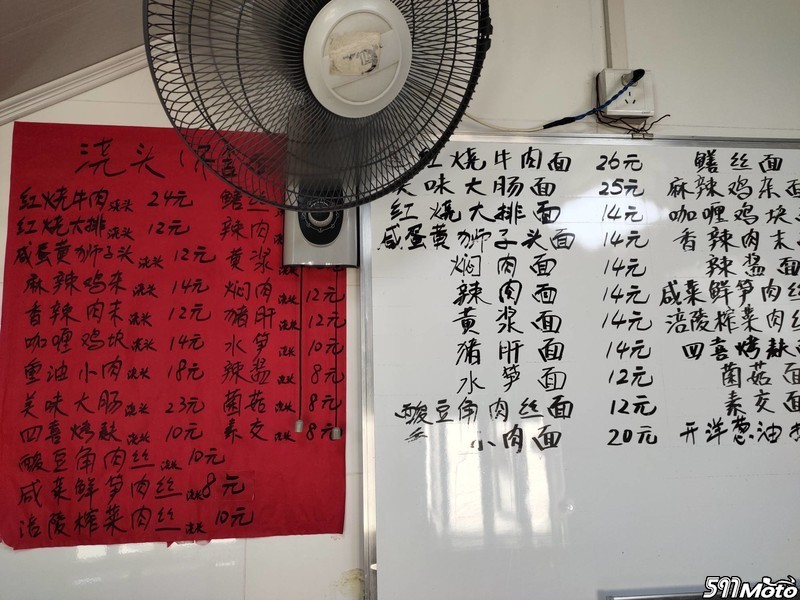 浇头
红烧牛肉浇头 24元 鳝丝
红烧大排浇头 12元 辣肉
咸蛋黄狮子头浇头 12元 黄浆
麻辣鸡杂浇头 14元 焖肉浇头 12元
香辣肉末浇头 12元 猪肝浇头 12元
咖喱鸡块浇头 14元 水笋浇头 10元
重油小肉浇头 18元 辣酱浇头 8元
美味大肠浇头 23元 菌菇浇头 8元
四喜烤麸浇头 10元 素交浇头 8元
酸豆角肉丝浇头 10元
咸菜鲜笋肉丝浇头 8元
涪陵榨菜肉丝浇头 10元
红烧牛肉面 26元 鳝丝面
美味大肠面 25元 麻辣鸡杂面
红烧大排面 14元 咖喱鸡块
咸蛋黄狮子头面 14元 香辣肉末
焖肉面 14元 辣酱面
辣肉面 14元 咸菜鲜笋肉丝
黄浆面 14元 涪陵榨菜肉丝
猪肝面 14元 四喜烤麸
水笋面 12元 菌菇面
酸豆角肉丝面 12元 素交面
小肉面 20元 开洋葱油
511Moto